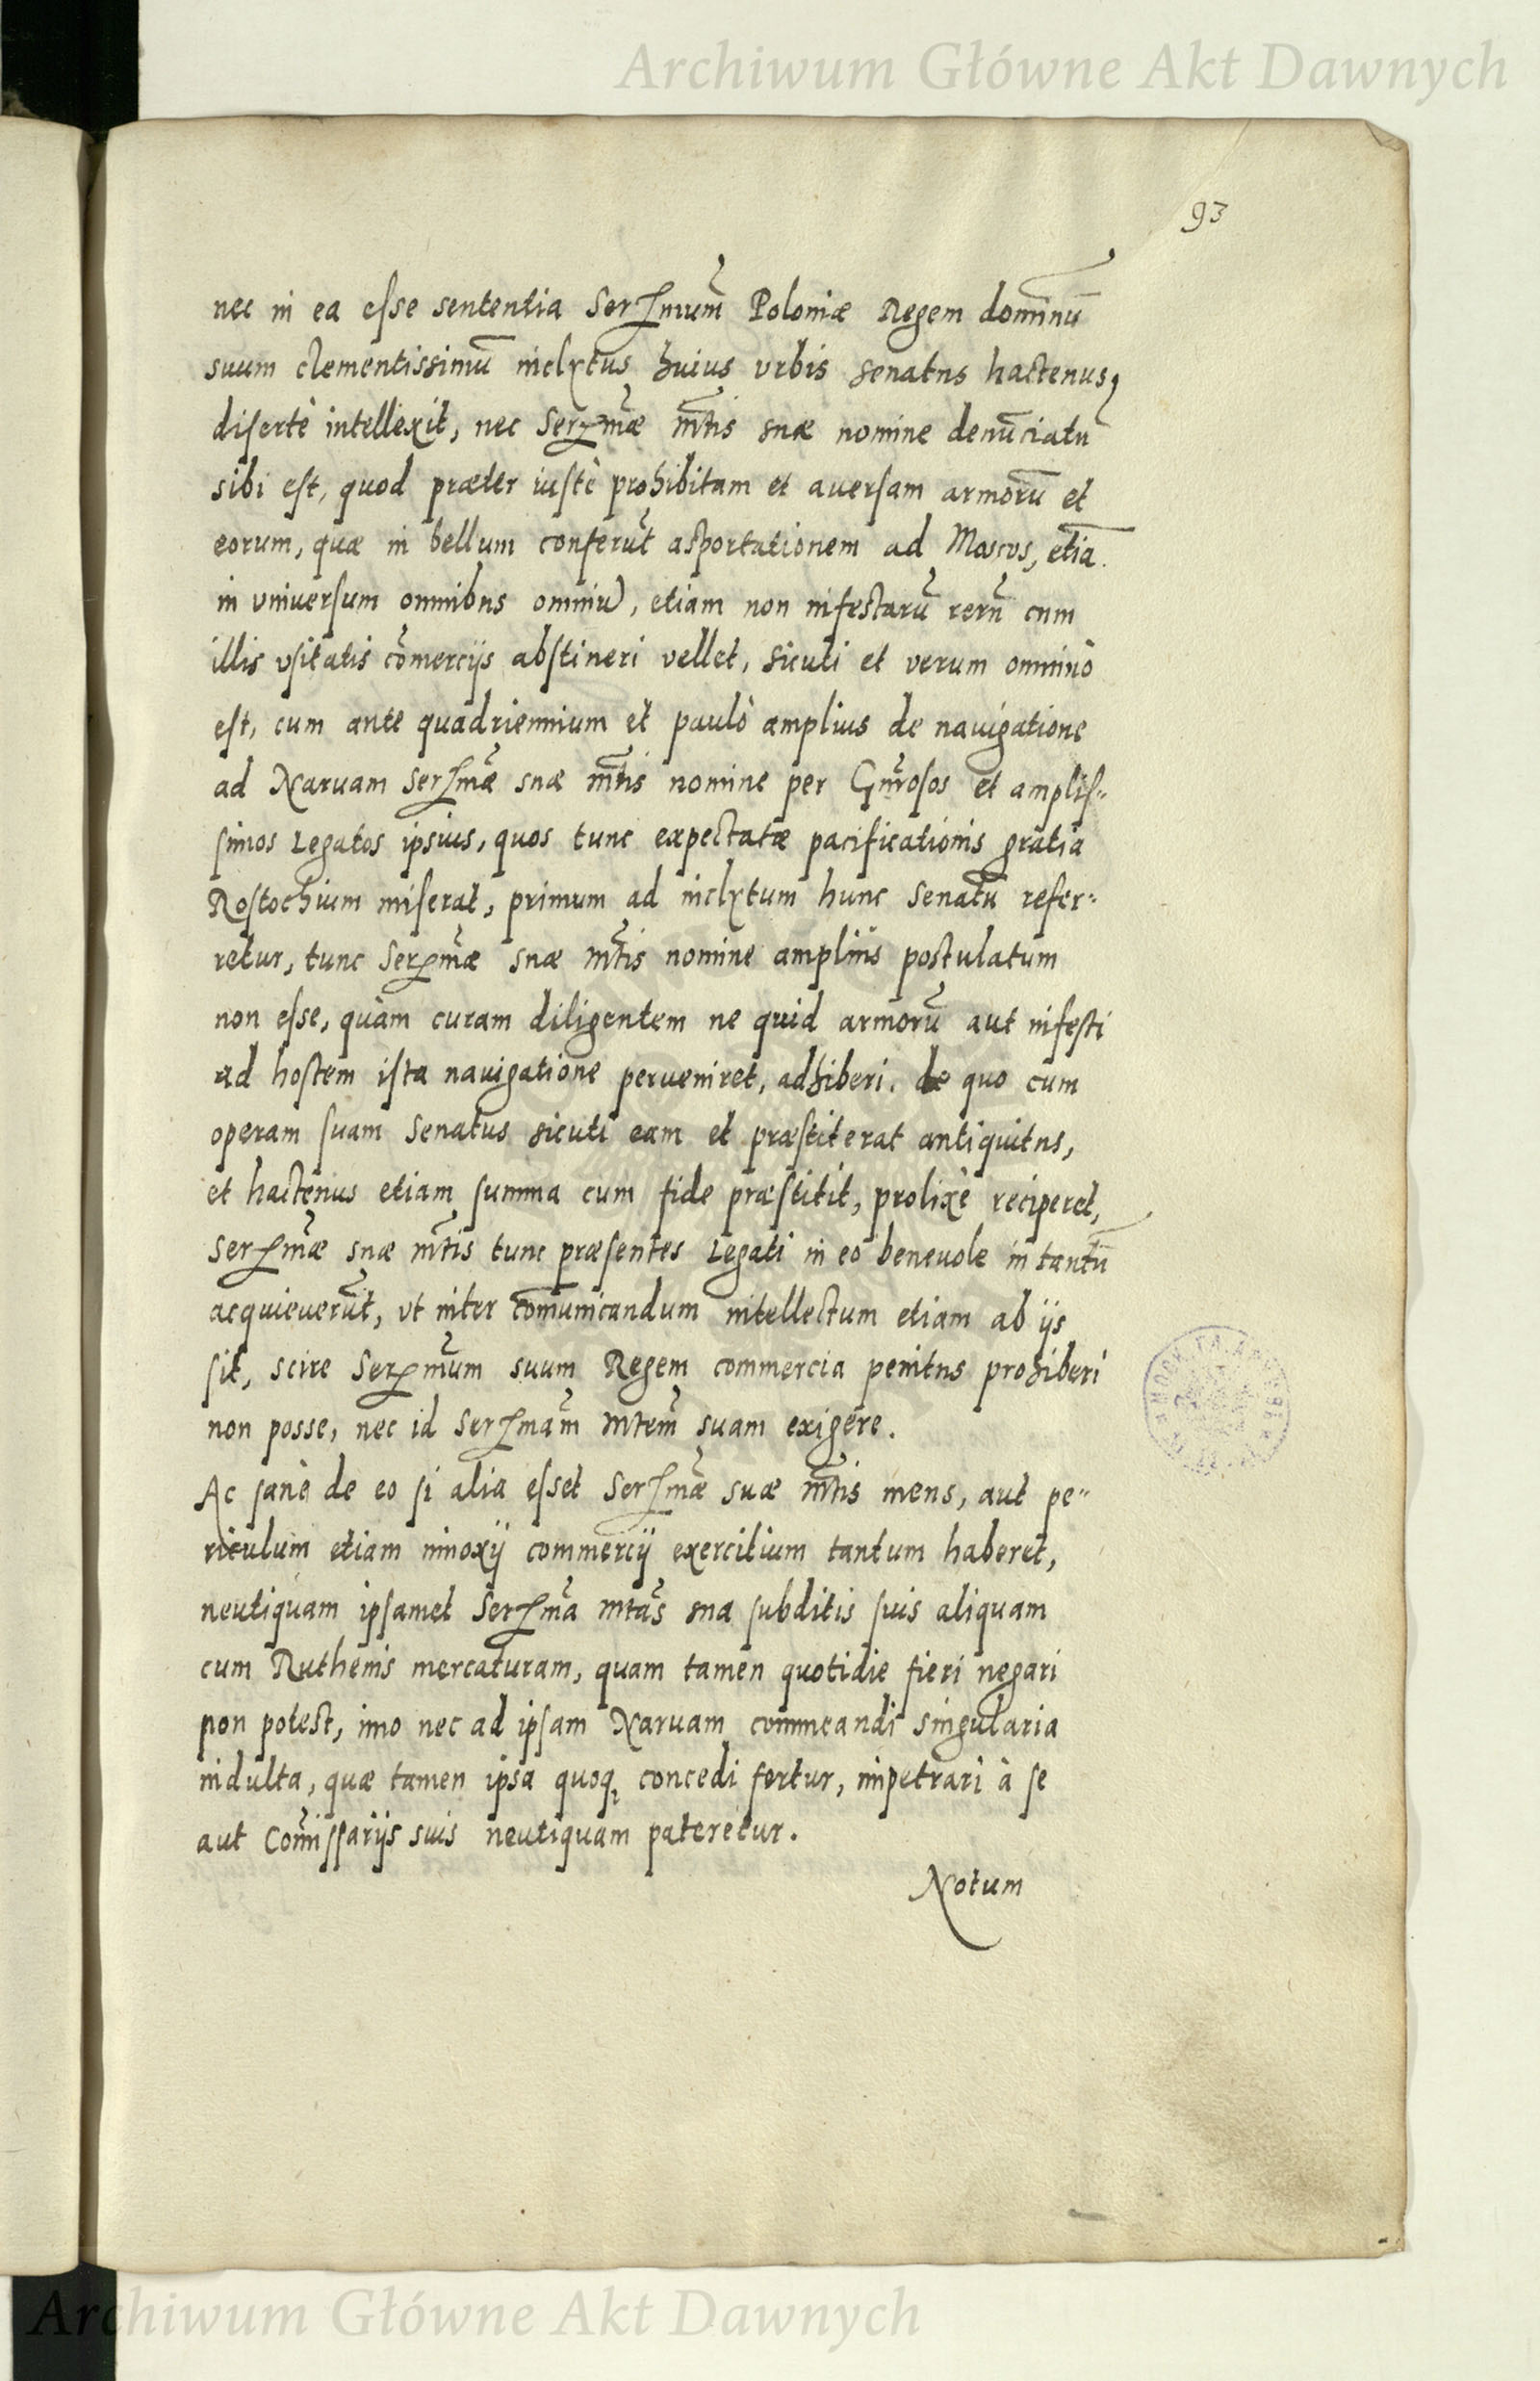 Archiwum Główne Akt Dawnych
93
nec in ea esse sententia Serſmum̃ Poloniæ Regem dominũ
suum clementissimũ inclytus huius vrbis senatus hactenus,
disertè intellexit, nec Serſmæ̃ m̃tis suæ nomine denũciatũ
sibi est, quod præter iustè prohibitam et auersam armorũ et
eorum, quæ in bellum conferũt asportationem ad Moscos, etiã
in vniuersum omnibus omniũ, etiam non infestarũ rerũ cum
illis vsitatis cõmercijs abstineri vellet, sicuti et verum omninò
est, cum ante quadriennium et paulò amplius de nauigatione
ad Naruam Serſmæ̃ suæ m̃tis nomine per Gñrosos et amplis„
simos Legatos ipsius, quos tunc expectatæ pacificationis gratia
Rostochium miserat, primum ad inclytum hunc senatũ refer„
retur, tunc Serſmæ̃ suæ m̃tis nomine ampliùs postulatum
non esse, quàm curam diligentem ne quid armorũ aut infesti
ad hostem ista nauigatione perueniret, adhiberi. de quo cum
operam suam senatus sicuti eam et præstiterat antiquitus,
et hactenus etiam summa cum fide præstitit, prolixè reciperet,
Serſmæ̃ suæ m̃tis tunc præsentes Legati in eo beneuole in tantũ
acquieuerũt, vt inter com̃unicandum intellectum etiam ab ijs
sit, scire Serſmũm suum Regem commercia penitus prohiberi
non posse, nec id Serſmam̃ mtem̃ suam exigere.
Ac sanè de eo si alia esset Serſmæ̃ suæ m̃tis mens, aut pe„
riculum etiam innoxij commercij exercitium tantum haberet,
neutiquam ipsamet Serſmã mtas̃ sua subditis suis aliquam
cum Ruthenis mercaturam, quam tamen quotidie fieri negari
non potest, imo nec ad ipsam Naruam commeandi singularia
indulta, quæ tamen ipsa quoq; concedi fertur, impetrari à se
aut Com̃issarijs suis neutiquam pateretur.
Notum
Archiwum Główne Akt Dawnych